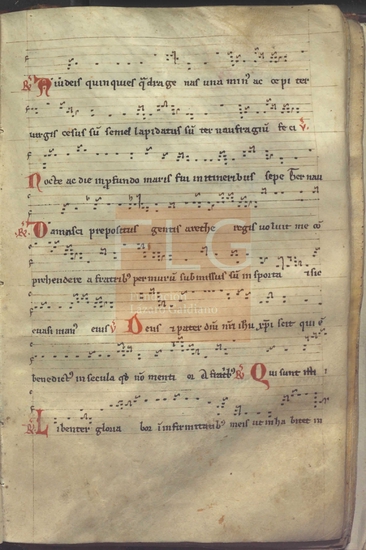 A iudeis quinquies q̄drage nas una min⁹ ac cepi ter
uirgis cesus sū semel lapidatus sū ter naufragiū feci ℣.
Nocte ac die in p̄fundo maris fui in itineribus sepe
℟. Damasci prepositus gentis arethe regis uoluit me cō
prehendere a fratrib⁹ per murū submissus sū in sporta
euasi man⁹ eius ℣ Deus pater dn̄i nr̄i ihū xp̄i scit qui ē
benedict⁹ in secula qd̄ nō menti or ℟ Qui sunt
℟ Libenter gloria bor in infirmitatib⁹ meis ut inhabitet in